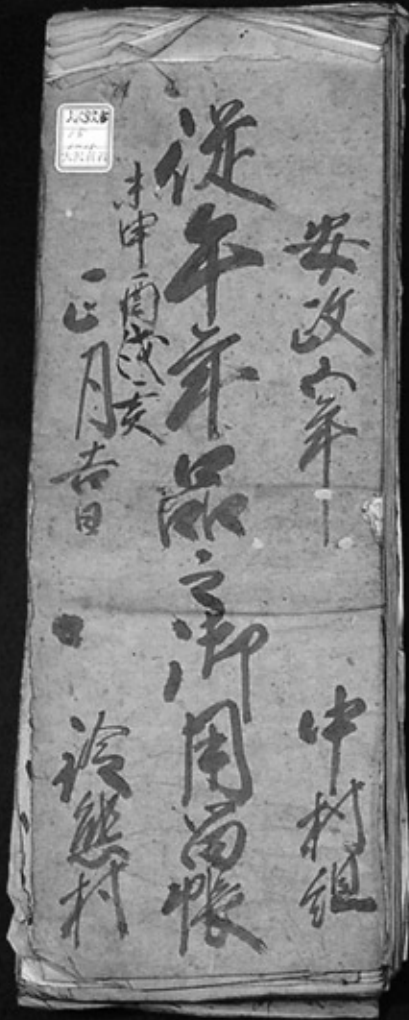 安政六年
中村組
従午年品之御用留帳
未申酉戌亥
正月吉日
熊村